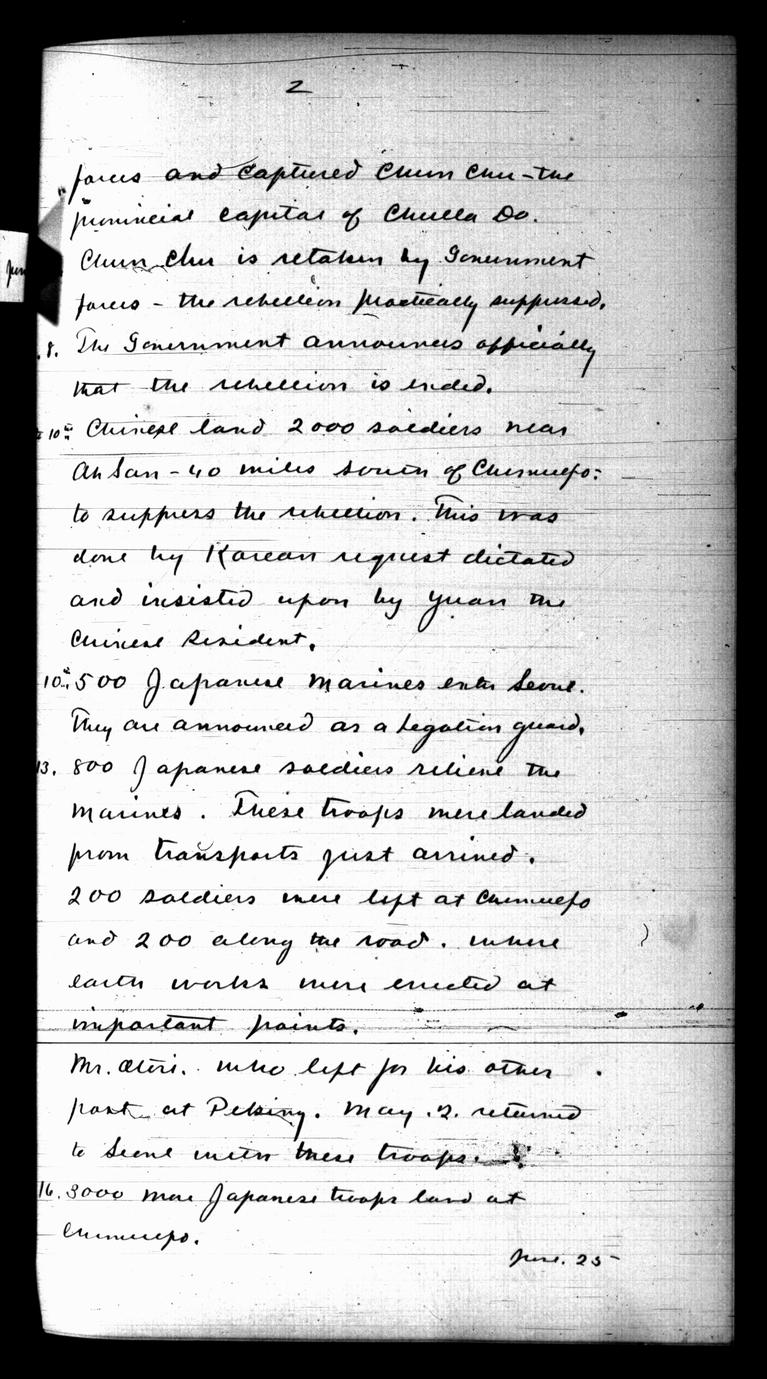 2
forces and captured Chun Chu - the
provincial capital of Chulla Do.
Chun Chu is retaken by Government
forces - the rebellion practically suppressed.
8. The Government announces officially
that the rebellion is ended.
10th Chinese land 2000 soldiers near
Ah San - 40 miles south of Chemulpo:
to suppress the rebellion. This was
done by Korean request dictated
and insisted upon by Yuan the
Chinese Resident.
10th 500 Japanese Marines enter Seoul.
They are announced as a Legation guard.
13. 800 Japanese soldiers relieve the
Marines. These troops were landed
from transports just arrived.
200 soldiers were left at Chemulpo
and 200 along the road. where
earth works were erected at
important points.
Mr. Otori. who left for his other
post at Peking. May .2. returned
to Seoul with these troops.
16. 3000 more Japanese troops land at
Chemulpo.
June. 25